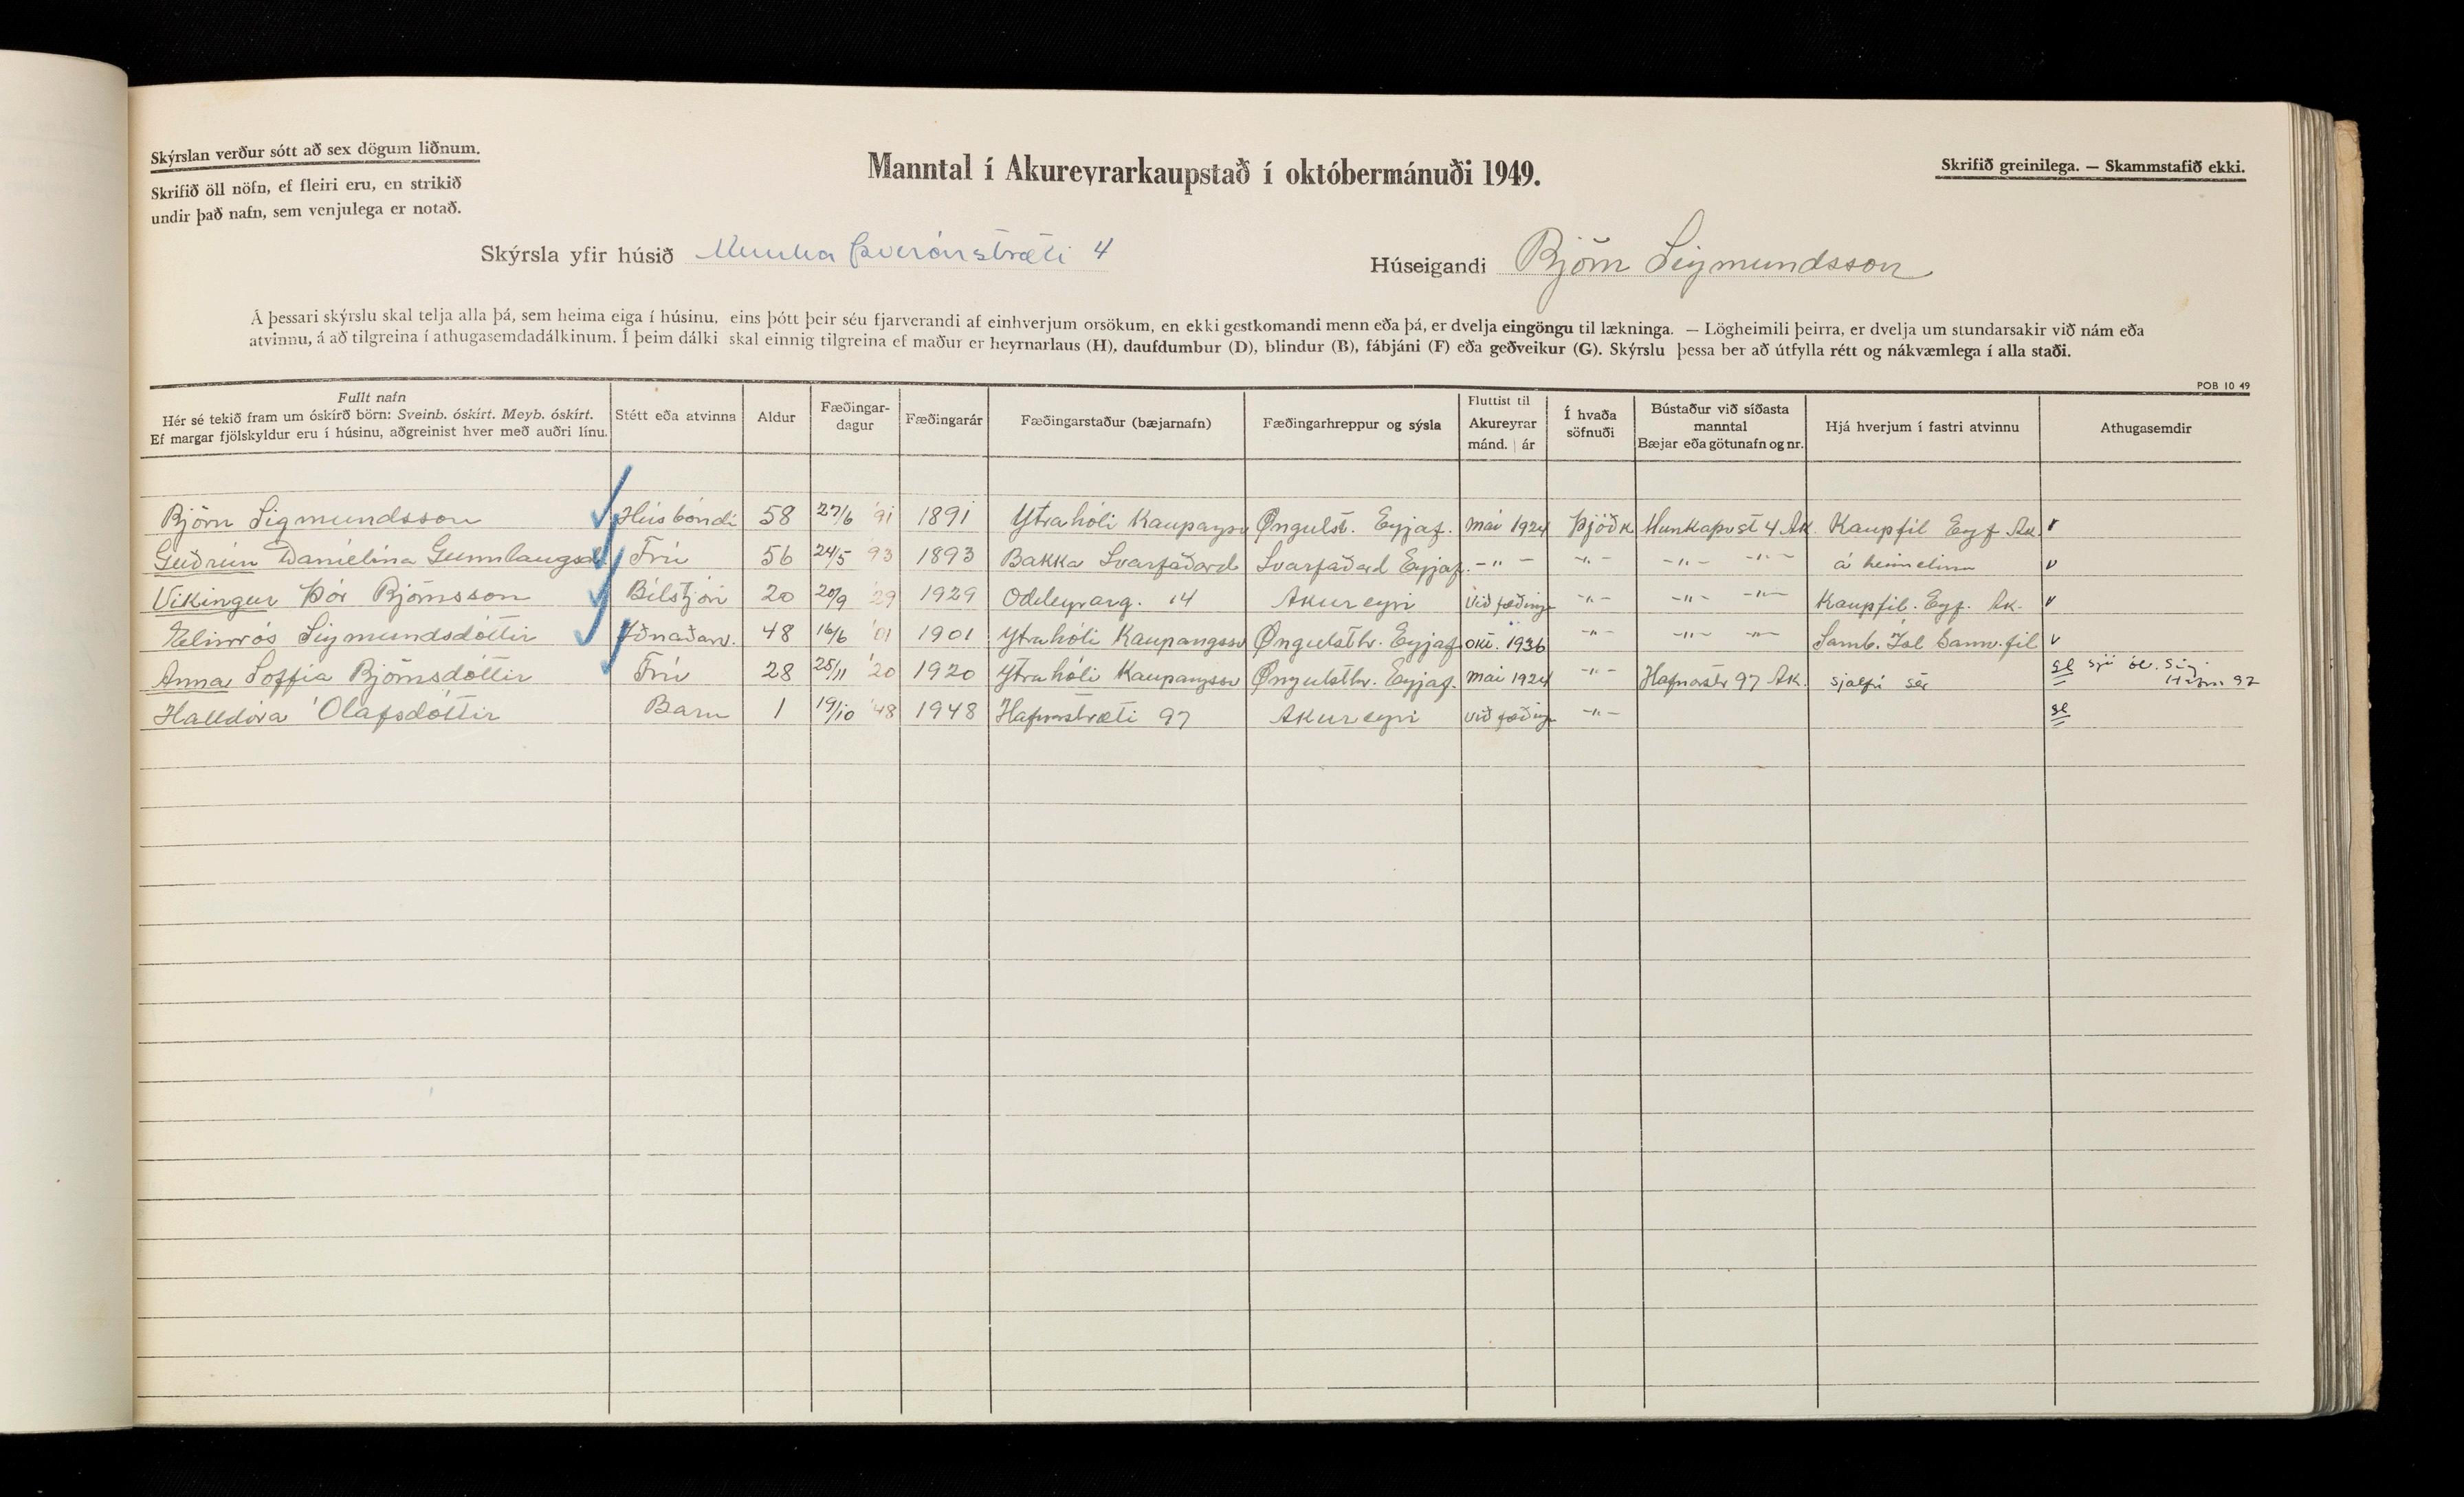 Skýrslan verður sótt að sex dögum liðnum.
Skrifið öll nöfn, ef fleiri eru, en strikið
undir það nafn, sem venjulega er notað.
Manntal í Akureyrarkaupstað í októbermánuði 1949.
Skrifið greinilega. — Skammstafið ekki.
Skýrsla yfir húsið Munkaþverárstræti 4
Húseigandi Björn Sigmundsson
Á þessari skýrslu skal telja alla þá, sem heima eiga í húsinu, eins þótt þeir séu fjarverandi af einhverjum orsökum, en ekki gestkomandi menn eða þá, er dvelja eingöngu til lækninga. — Lögheimili þeirra, er dvelja um stundarsakir við nám eða
atvinnu, á að tilgreina í athugasemdadálkinum. Í þeim dálki skal einnig tilgreina ef maður er heyrnarlaus (H), daufdumbur (D), blindur (B), fábjáni (F) eða geðveikur (G). Skýrslu þessa ber að útfylla rétt og nákvæmlega í alla staði.
POB 10 49
Fullt nafn
Hér sé tekið fram um óskírð börn: Sveinb. óskírt. Meyb. óskírt.
Ef margar fjölskyldur eru í húsinu, aðgreinist hver með auðri línu.
Stétt eða atvinna
Aldur
Fæðingar-
dagur
Fæðingarár
Fæðingarstaður (bæjarnafn)
Fæðingarhreppur og sýsla
Fluttist til
Akureyrar
mánd. | ár
Í hvaða
söfnuði
Bústaður við síðasta
manntal
Bæjar eða götunafn og nr.
Hjá hverjum í fastri atvinnu
Athugasemdir
Björn Sigmundsson Húsbóndi 58 27/6 '91 1891 Ytrahóli Kaupangsv Øngulst. Eyjaf. mai 1924 Þjóðk Munkaþvst 4 Ak. Kaupfél Eyf Ak. v
Guðrún Daníelína Gunnlaugsd Frú 56 24/5 93 1893 Bakka Svarfaðard Svarfaðard Eyjaf. -"- -"- -"- -"- á heimilinu v
Víkingur Þór Björnsson Bílstjóri 20 20/9 29 1929 Oddeyrarg. 14 Akureyri Við fæðingu -"- -"- -"- Kaupfél. Eyf. Ak. v
Elinrós Sigmundsdóttir Iðnaðarv. 48 16/6 '01 1901 Ytrahóli Kaupangssv Øngulsthr. Eyjaf okt. 1936 -"- -"- -"- Samb. Ísl Samv.fél v
Anna Soffía Björnsdóttir Frú 28 25/11 '20 1920 Ytrahóli Kaupangssv Øngulsthr. Eyjaf. mai 1924 -"- Hafnarstr 97 Ak. sjálfri sér sjá Ól. Sig.
97
Halldóra Ólafsdóttir Barn 1 19/10 '48 1948 Hafnarstræti 97 Akureyri Við fæðingu -"-